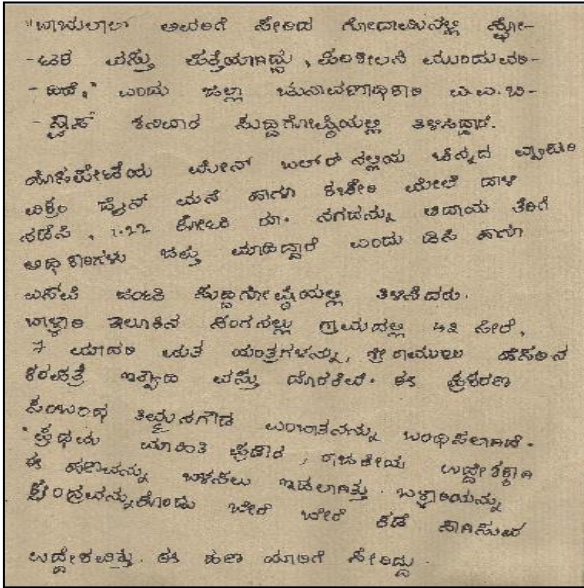 "ಬಾಬುಲಾಲ್ ಅವರಿಗೆ ಸೇರಿದ ಗೋದಾಮಿನಲ್ಲಿ ಸ್ಫೋ-
-ಟಕ ವಸ್ತು ಪತ್ತೆಯಾಗಿದ್ದು, ಪರಿಶೀಲನೆ ಮುಂದುವರಿ-
-ದಿದೆ," ಎಂದು ಜಿಲ್ಲಾ ಚುನಾವಣಾಧಿಕಾರಿ ಎ.ಎ.ಬಿ-
-ಸ್ವಾಸ್ ಶನಿವಾರ ಸುದ್ದಿಗೋಷ್ಠಿಯಲ್ಲಿ ತಿಳಿಸಿದ್ದಾರೆ.
ಹೊಸಪೇಟೆಯ ಮೇನ್ ಬಜಾರ್ ನಲ್ಲಿಯ ಚಿನ್ನದ ವ್ಯಾಪಾರಿ
ವಿಕ್ರಂ ಜೈನ್ ಮನೆ ಹಾಗೂ ಕಚೇರಿ ಮೇಲೆ ದಾಳಿ
ನಡೆಸಿ, 1.22 ಕೋಟಿ ರೂ. ನಗದನ್ನು ಆದಾಯ ತೆರಿಗೆ
ಅಧಿಕಾರಿಗಳು ಜಪ್ತು ಮಾಡಿದ್ದಾರೆ ಎಂದು ಡಿಸಿ ಹಾಗೂ
ಎಸ್ಪಿ ಜಂಟಿ ಸುದ್ದಿಗೋಷ್ಠಿಯಲ್ಲಿ ತಿಳಿಸಿದರು.
ಬಳ್ಳಾರಿ ತಾಲೂಕಿನ ಸಂಗನಕಲ್ಲು ಗ್ರಾಮದಲ್ಲಿ ೪೩ ಸೀರೆ,
7 ಮಾದರಿ ಮತ ಯಂತ್ರಗಳನ್ನು, ಶ್ರೀರಾಮುಲು ಹೆಸರಿನ
ಕರಪತ್ರ ಇತ್ಯಾದಿ ವಸ್ತು ದೊರಕಿವೆ. ಈ ಪ್ರಕರಣ
ಸಂಬಂಧ ತಿಮ್ಮನಗೌಡ ಎಂಬಾತನನ್ನು ಬಂಧಿಸಲಾಗಿದೆ.
"ಪ್ರಥಮ ಮಾಹಿತಿ ಪ್ರಕಾರ, ರಾಜಕೀಯ ಉದ್ದೇಶಕ್ಕಾಗಿ
ಈ ಹಣವನ್ನು ಬಳಸಲು ಇಡಲಾಗಿತ್ತು. ಬಳ್ಳಾರಿಯನ್ನು
ಕೇಂದ್ರವನ್ನಾಗಿಟ್ಟುಕೊಂಡು ಬೇರೆ ಬೇರೆ ಕಡೆ ಸಾಗಿಸುವ
ಉದ್ದೇಶವಿತ್ತು. ಈ ಹಣ ಯಾರಿಗೆ ಸೇರಿದ್ದು.